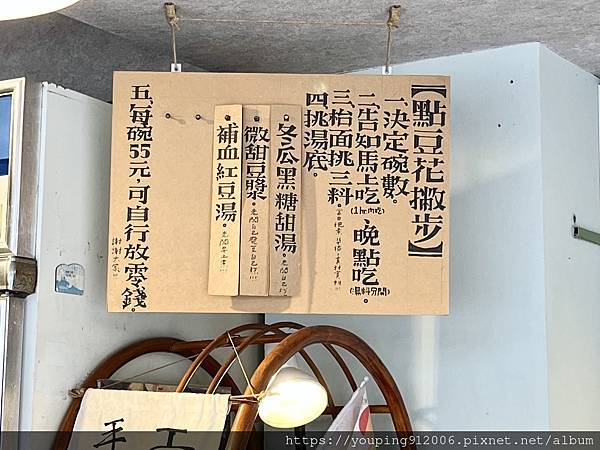 【點豆花撇步】
一、決定碗數。
二、告知馬上吃(1hr內吃)、晚點吃(湯料分開)。
三、枱面挑三料。
四、挑湯底。
冬瓜黑糖甜湯。
微甜豆漿。
補血紅豆湯。
五、每碗55元,可自行放零錢。
謝謝大家
手工
https://youping912006.pixnet.net/album